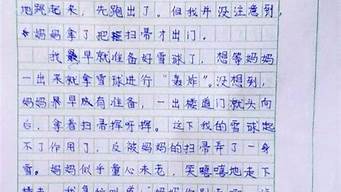 地跑起来，先跑出了。但我并没注意到，
妈妈拿了把扫帚才出门。
我最早就准备好雪球了，想等妈妈
一出来就拿雪球进行“轰炸”。没想到，
妈妈是早成有准备，一出楼道门就头向
白，拿着扫帚挥呀挥。这下我的雪球起
不了作用了，反被妈妈的扫帚弄了一身
雪。妈妈似乎童心未老，笑嘻嘻地走下